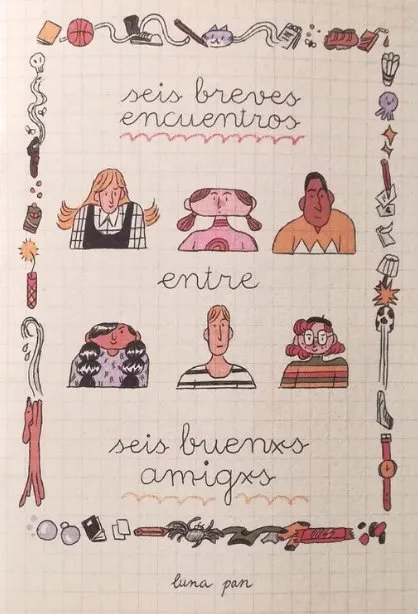 seis breves
encuentros
entre
seis buenxs
amigxs
luna pan